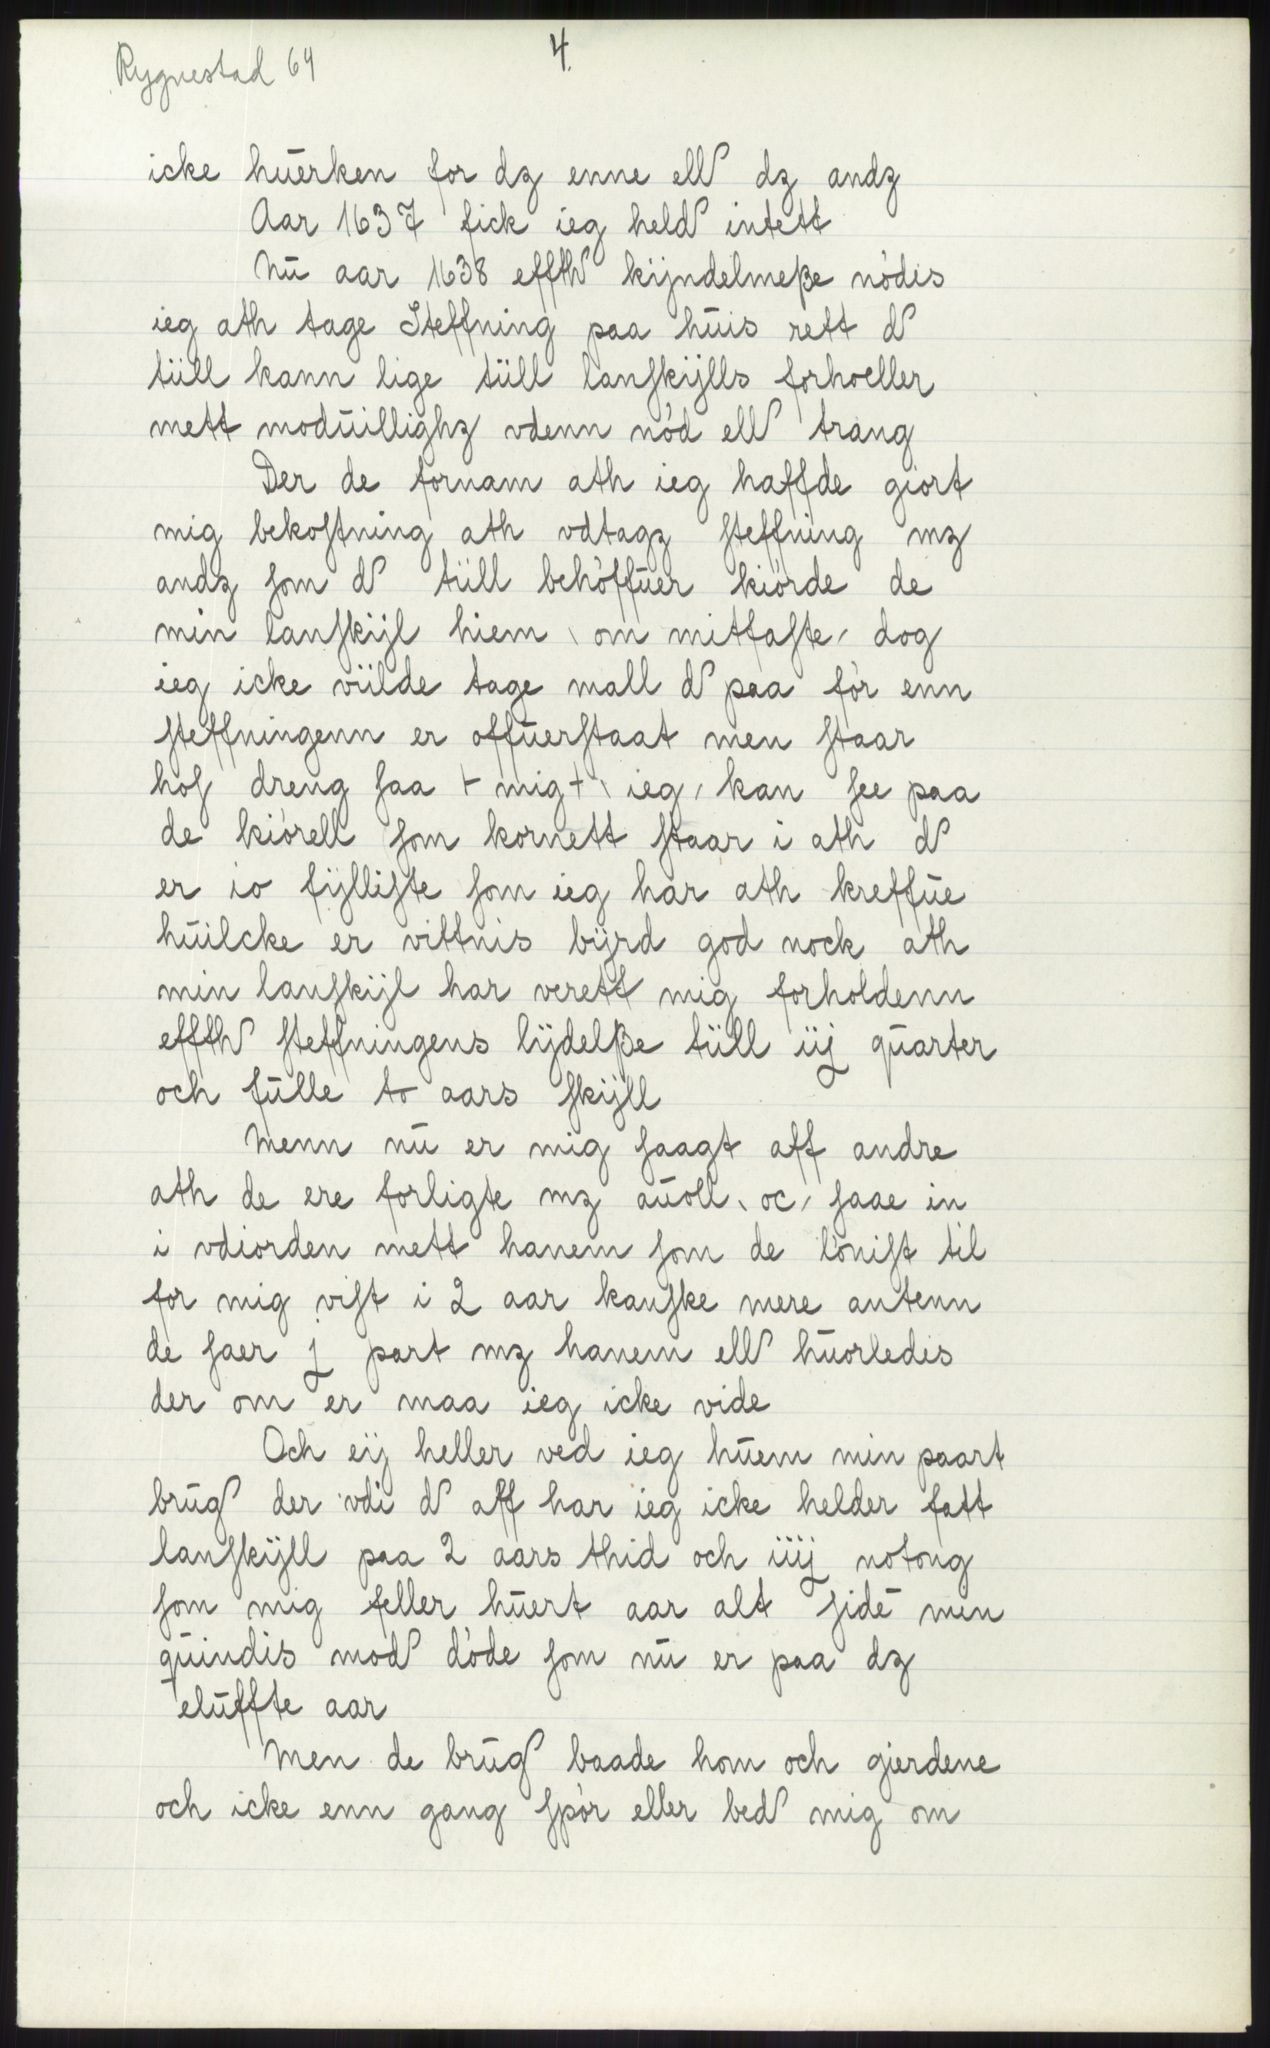 Rygnestad 64
4.
icke huerken for dz enne ell dz andz
Aar 1637 fick ieg held intett
Nu aar 1638 effth kijndelmeße nödis
ieg ath tage Steffning paa huis rett d
tüll kann lige tüll lanſkijlls forhoeller
mett moduillighz vdenn nöd ell trang
Der de fornam ath ieg haffde giort
mig bekoſtning ath vdtagz ſteffning mz
andz ſom d tüll behöffuer kiörde de
min lanſkijl hiem \ om mitfaſte / dog
ieg icke vülde tage mall d paa för enn
ſteffningenn er offuerſtaat men ſtaar
hoſ dreng ſaa + mig + \ ieg / kan ſee paa
de kiörell ſom kornett ſtaar i ath d
er io fijlliſte ſom ieg har ath kreffue
huilcke er vittnis bijrd god nock ath
min lanſkijl har verett mig forholdenn
effth ſteffningens lijdelße tüll iij quarter
och fulle to aars ſkijll
Menn nu er mig ſaagt aff andre
ath de ere forligte mz auoll \ oc / ſaae in
i vdiorden mett hanem ſom de löniſt til
for mig viſt i 2 aar kanſke mere antenn
de ſaer j part mz hanem ell huorledis
der om er maa ieg icke vide
Och eij heller ved ieg huem min paart
brug der vdi d aff har ieg icke helder fatt
lanſkijll paa 2 aars thid och iiij notong
ſom mig feller huert aar alt ſidē men
quindis mod döde ſom nu er paa dz
eluffte aar
Men de brug baade hom och gierdene
och icke enn gang ſpör eller bed mig om